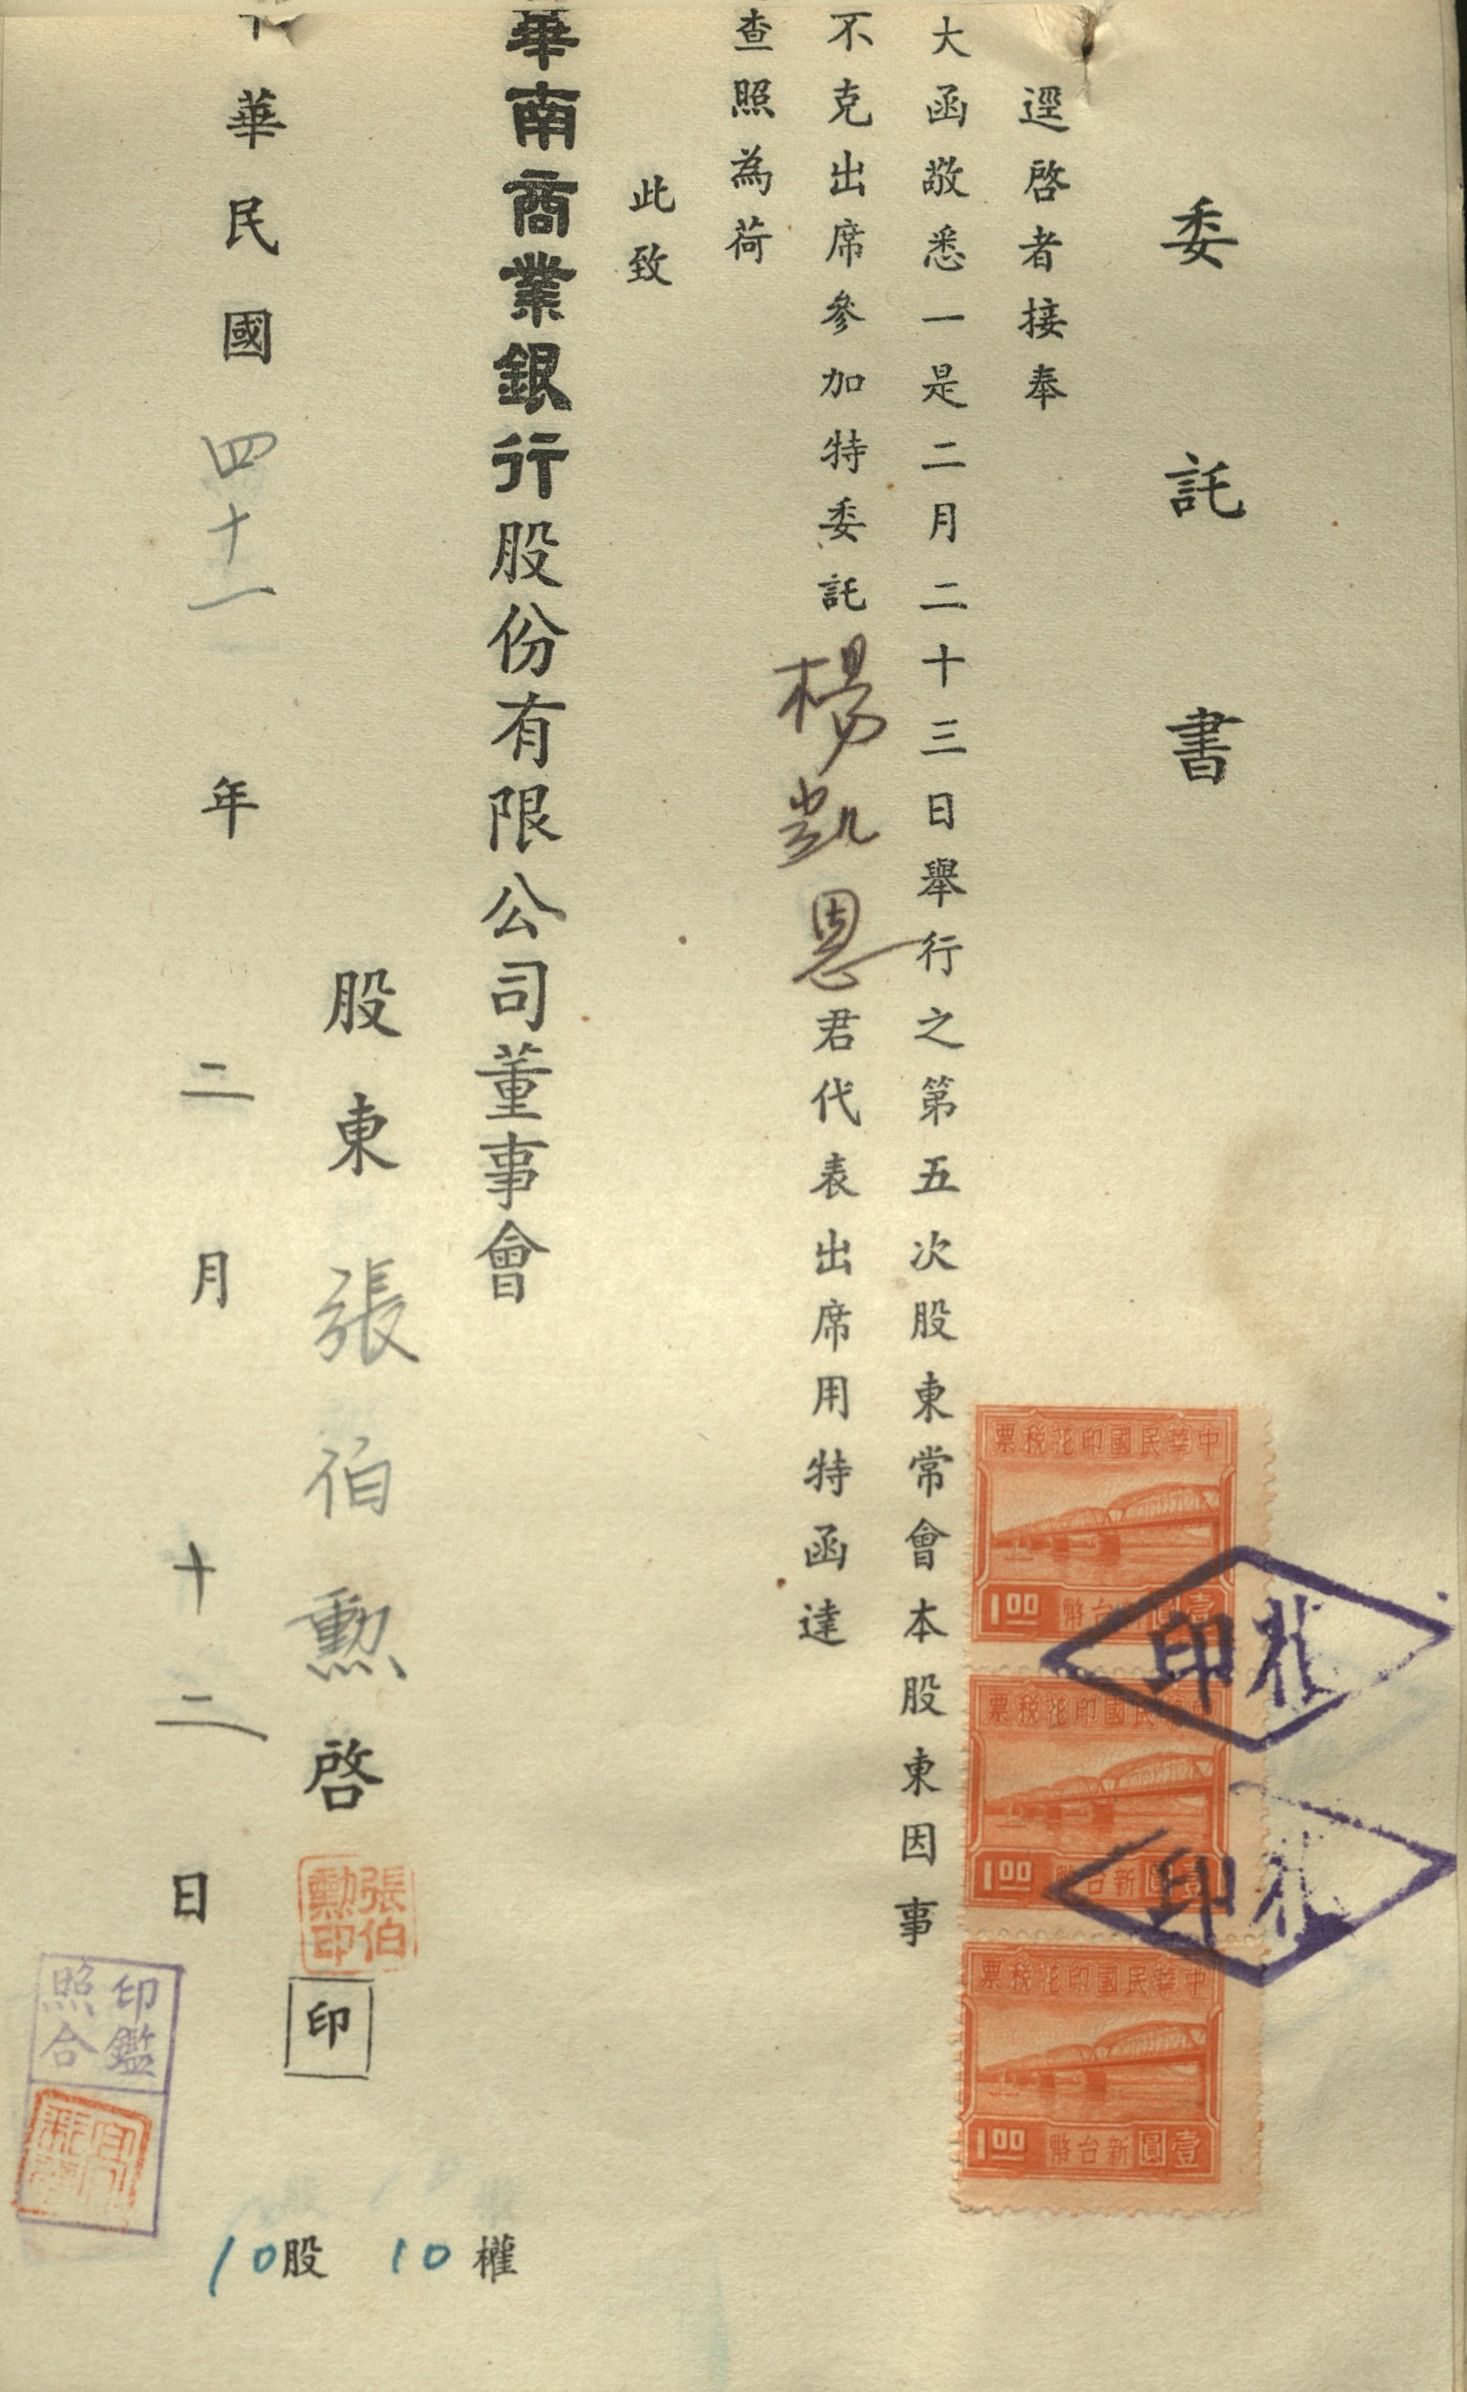 委託書
逕啓者接奉
大函敬悉一是二月二十三日舉行之第五次股東常會本股東因事
不克出席參加特委託楊凱恩君代表出席用特函達
查照為荷
此致
華南商業銀行股份有限公司董事會
股東張伯勲啓
張伯勲印
印
中華民國四十一年二月十二日
印鑑照合
10股 10權
中華民國印花稅票
1.00 壹圓新台幣
中華民國印花稅票
1.00 壹圓新台幣
中華民國印花稅票
1.00 壹圓新台幣
印花
印花